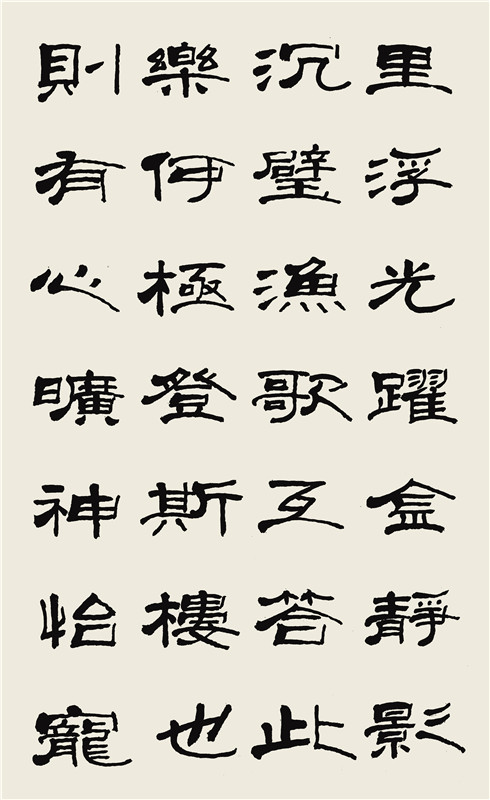 里浮光躍金靜影
沉璧漁歌互答此
樂何極登斯樓也
則有心曠神怡寵